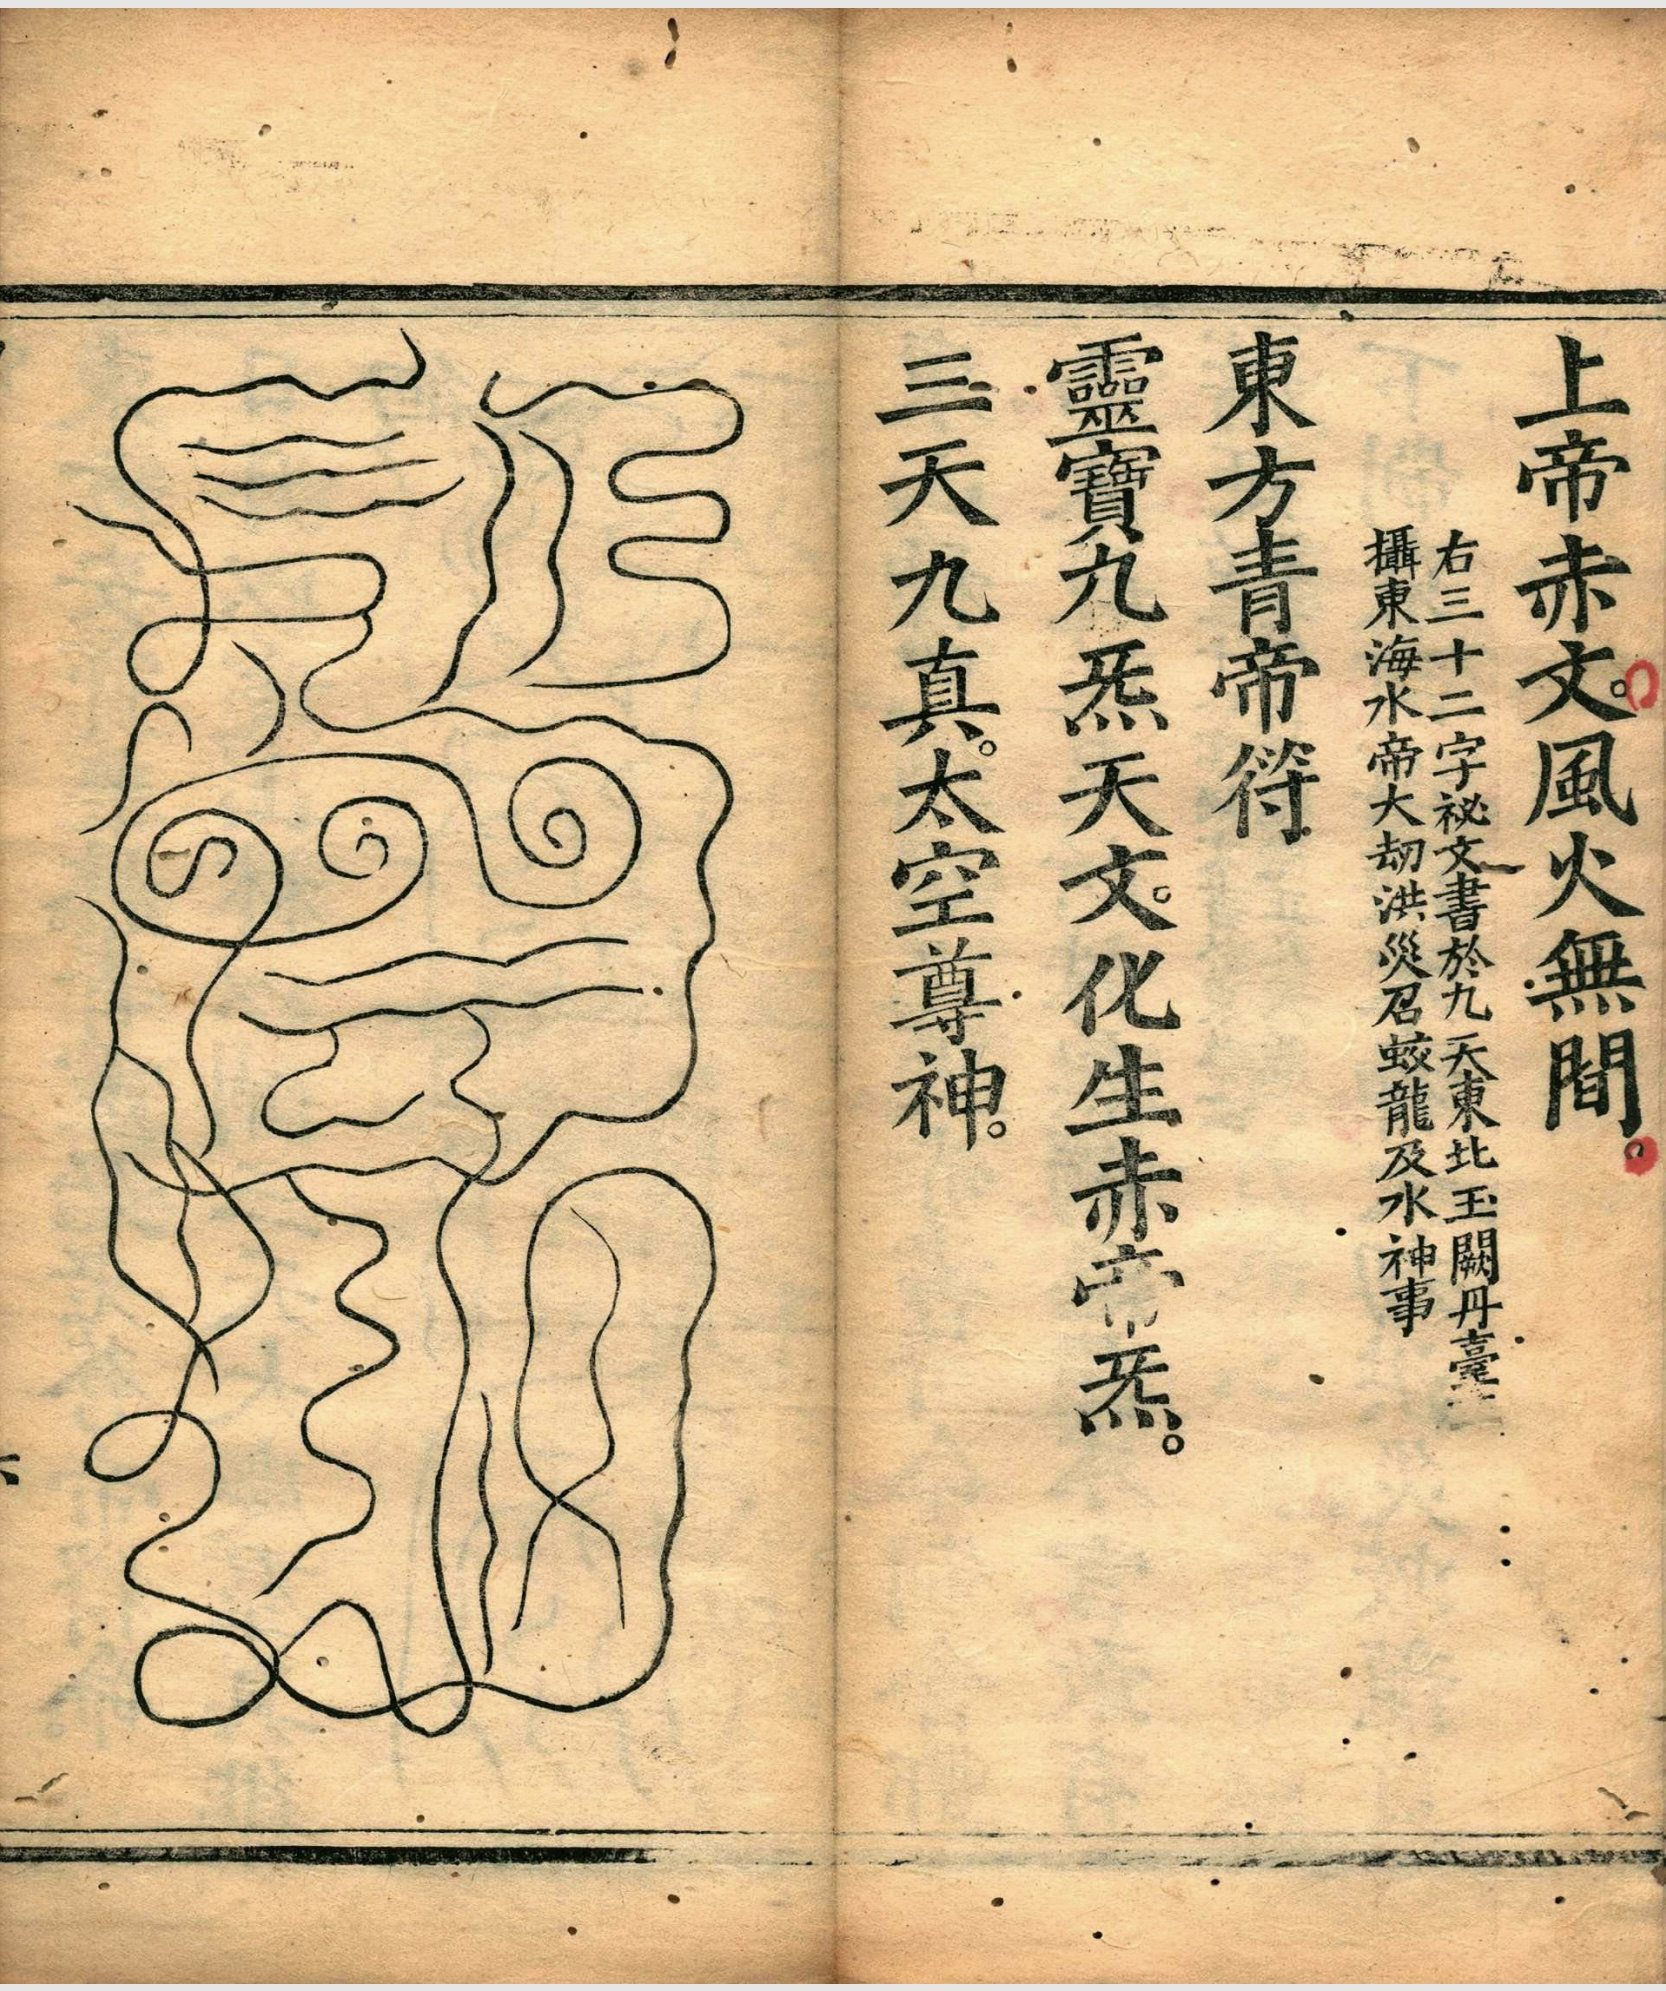 上帝赤文。風火無間。
右三十二字祕文書於九天東北玉闕丹臺
攝東海水帝大劫洪災召蛟龍及水神事
東方青帝符
靈寶九炁天文。化生赤帝炁。
三天九真。太空尊神。